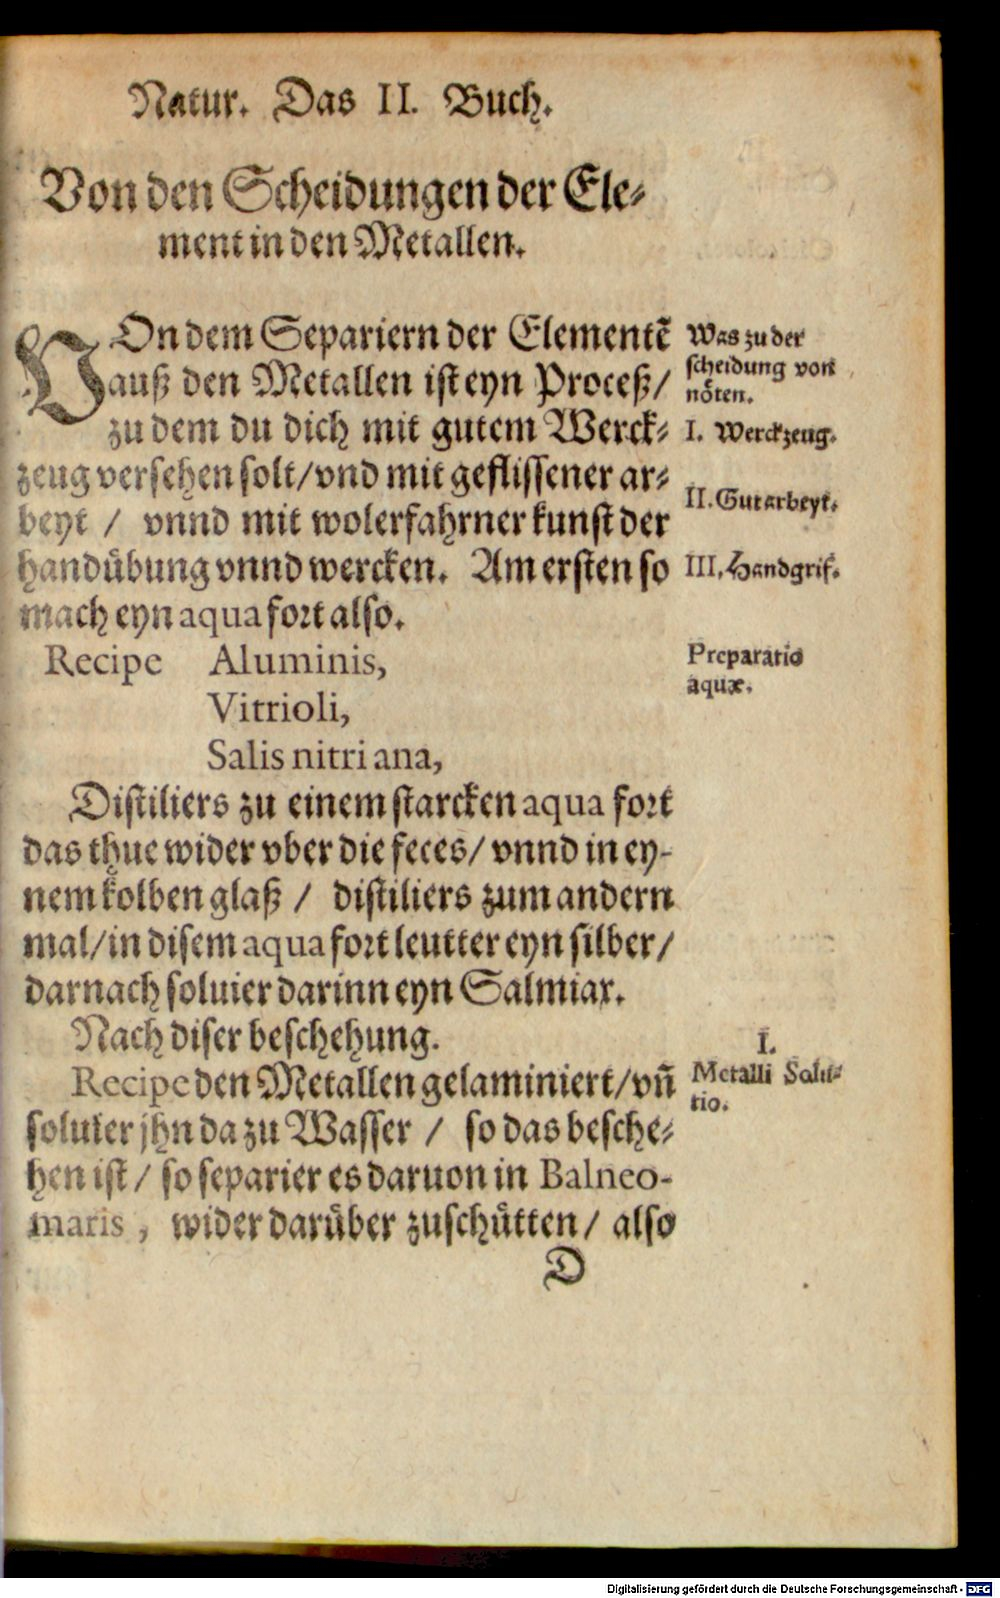 Natur. Das II. Buch.
Von den Scheidungen der Ele⸗
ment in den Metallen.
VOn dem Separiern der Elementẽ
auß den Metallen ist eyn Proceß/
zu dem du dich mit gutem Werck⸗
zeug versehen solt/vnd mit geflissener ar⸗
beyt / vnnd mit wolerfahrner kunst der
handuͤbung vnnd wercken. Am ersten so
mach eyn aqua fort also.
Recipe Aluminis,
Vitrioli,
Salis nitri ana,
Distiliers zu einem starcken aqua fort
das thue wider vber die feces/ vnnd in ey-
nem kolben glaß / distiliers zum andern
mal/in disem aqua fort leutter eyn silber/
darnach soluier darinn eyn Salmiax.
Nach diser beschehung.
Recipe den Metallen gelaminiert/vñ
soluier jhn da zu Wasser / so das besche⸗
hen ist/ so separier es daruon in Balneo-
maris, wider daruͤber zuschuͤtten/ also
D
Was zu der
scheidung von
noͤten.
I. Werckzeug.
II. Gut arbeyt.
III. Handgrif.
Preparatio
aquæ.
I.
Metalli Solu⸗
tio.
Digitalisierung gefördert durch die Deutsche Forschungsgemeinschaft - DFG